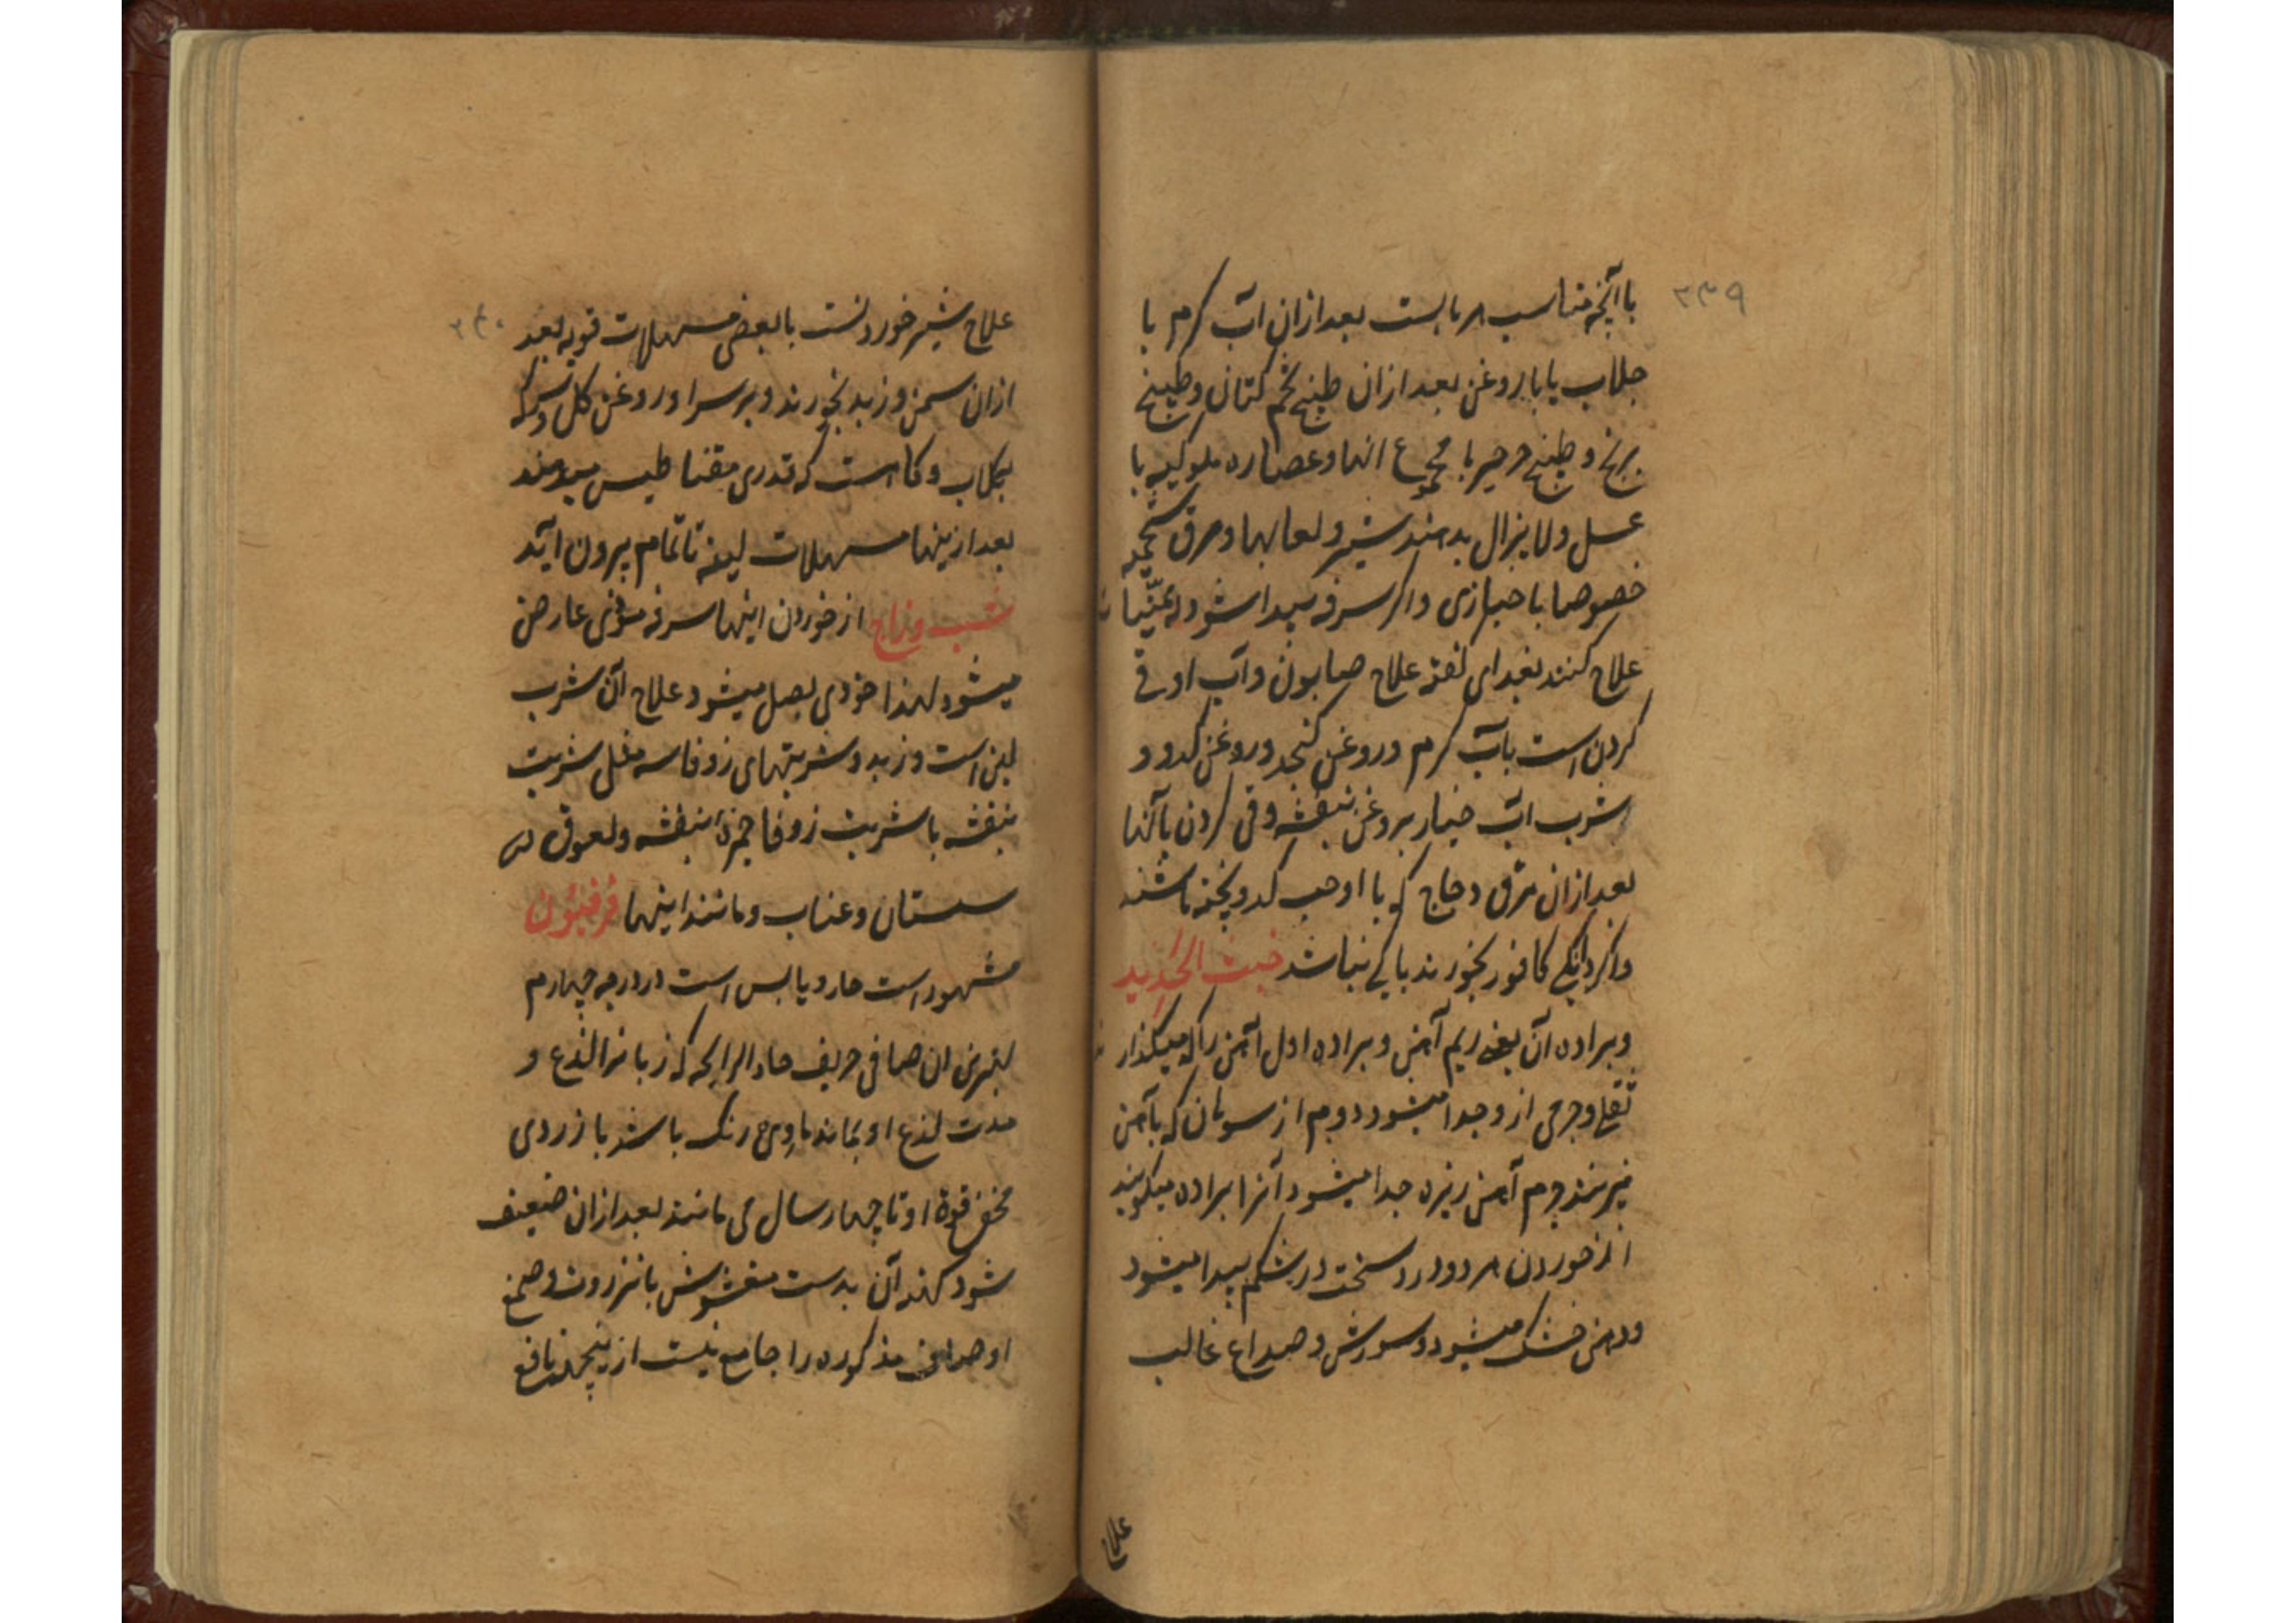 ۲۳۹
با آنچه مناسب هر بابست بعد ازان آب کرم با
جلاب یا با روغن بعد ازان طبیخ تخم کتان و طبیخ
برنج و طبیخ جرجیر با مجموع انها و عصاره ملوکیه با
عسل و لا یزال بدهند شیر و لعابها و مرق
خصوصا با خبازی و اکر سرفه پیدا شود
علاج کنند علاج صابون و آب او قی
کردن است بآب کرم و روغن کنجد و روغن کدو و
شرب آب خیار بروغن بنفشه و قی کردن بآنها
بعد ازان مرق دجاج که با او حب کدو پخته باشند
و اکر دانکی کافور بخورند باکی نباشد خبث الحدید
و براده آن یعنی ریم آهن و براده اول آهن را که میکذار
ثقلی و جرمی ازو جدا میشود دوم از سوهان که بآهن
میزنند جرم آهن ریزه جدا میشود آنرا براده میکویند
از خوردن هر دو درد سخت در شکم پیدا میشود
و دهن خشک میشود و سوزش و صداع غالب
علاج
۲۴۰
علاج شیر خوردنست با بعض مسهلات قویه بعد
ازان سمن و زبد بخورند و بر سر او روغن کل و سرکه
بکلاب و کاه است که قدری مقناطیس میدهند
بعد ازینها مسهلات لینه تا تمام بیرون آید
شب و زاج از خوردن اینها سرفه موذی عارض
میشود لهذا میشود علاج آن شرب
لبن است و زبد و شربتهای زوفا مثل شربت
بنفشه با شربت زوفا بنفشه و لعوق
سپستان و عناب و مانند اینها فرفیون
مشهور است حار و یابس است در درجه چهارم
بهترین ان صافی حریف حاد الرایحه که زبانرا لذع و
مدت لذع او بماند رنک باشد با زردی
قوة او تا چهار سال می مانند بعد ازان ضعیف
شود کهنه آن بدست مغشوش بانزروت و صمغ
اوصاف مذکوره را جامع نیست ازینجهت نافع